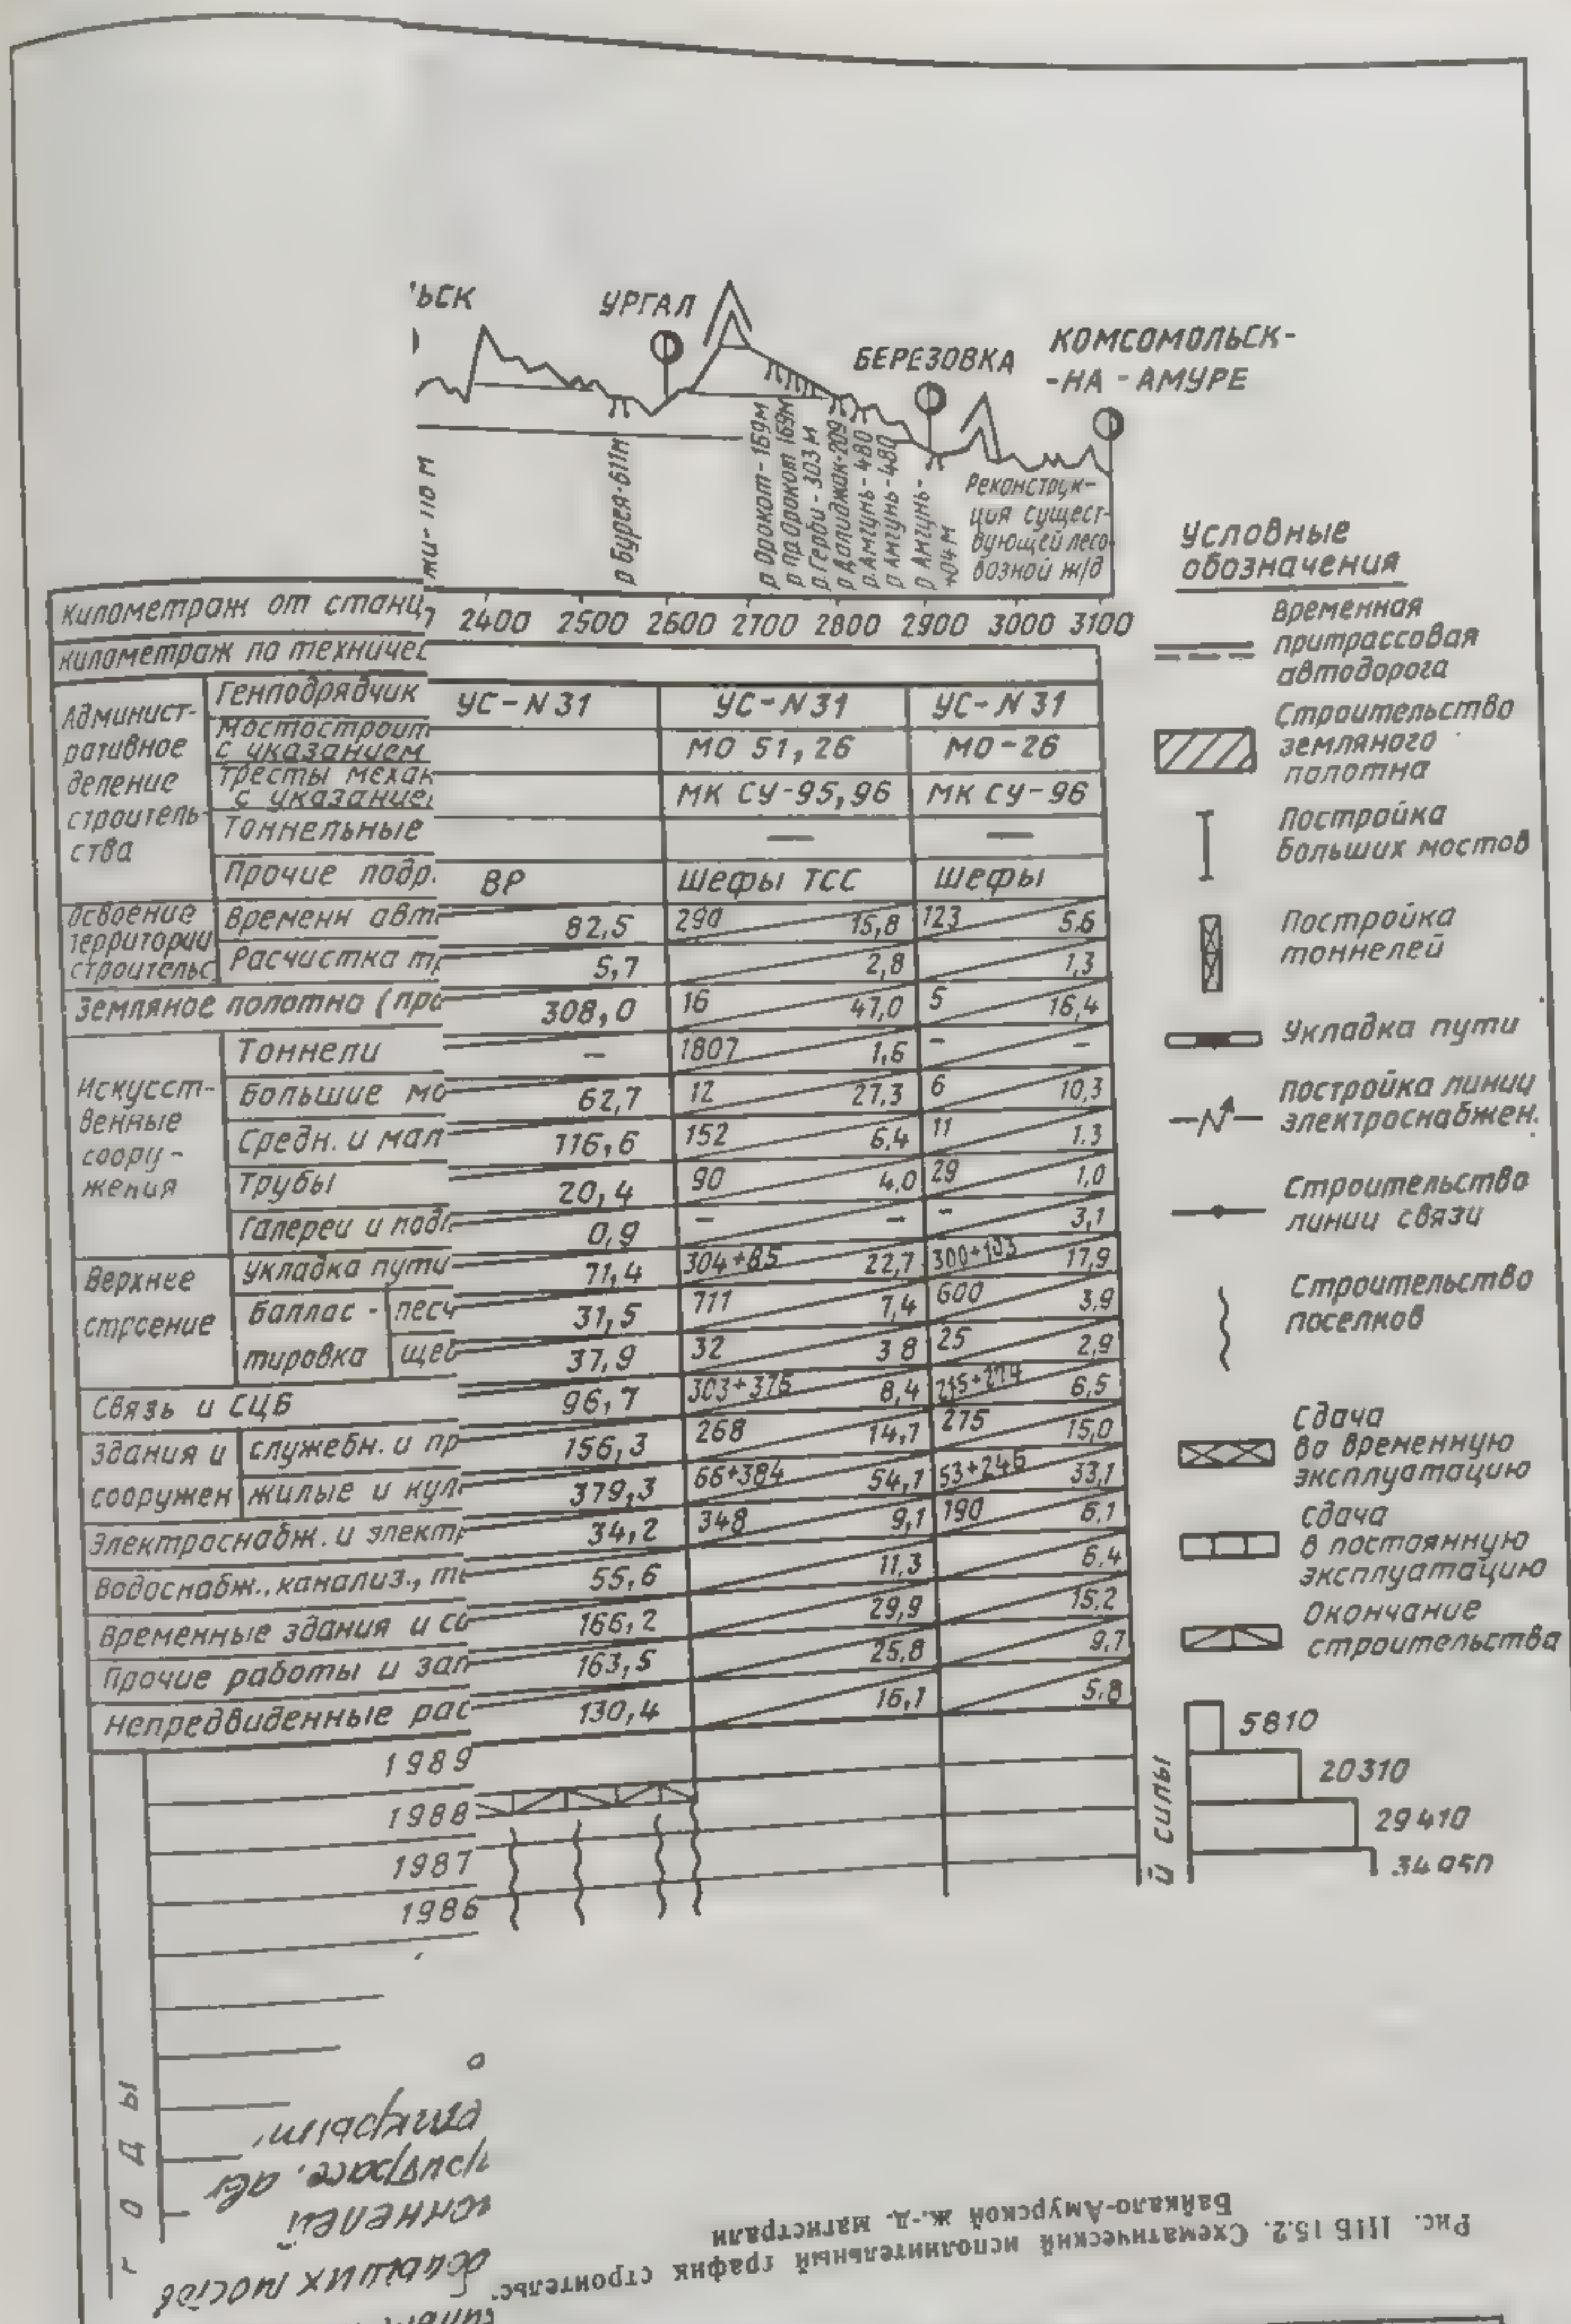 ЬСК
УРГАЛ
БЕРЕЗОВКА
КОМСОМОЛЬСК-
-НА-АМУРЕ
жи-110 м
р Бурея-611м
р Орокот-169м
р Пр Орокот 169м
р. Герби-303 м
р Далиджак-209
р. Амгунь-480
р Амгунь-480
р Амгунь-
404 м
Реконструк-
ция сущест-
вующей лесо-
возной ж/д
километраж от станц
2400 2500 2600 2700 2800 2900 3000 3100
километраж по техничес
Админист-
ративное
деление
строитель-
ства
Генподрядчик УС-N31 УС-N31 УС-N31
Мостостроит
с указанием МО 51,26 МО-26
Тресты механ
с указание МК СУ-95,96 МК СУ-96
Тоннельные — —
Прочие подр. ВР Шефы ТСС шефы
Освоение
территории
строительс
Временн авт 82,5 290 15,8 123 5.6
Расчистка тр 5,7 2,8 1,3
Земляное полотно (про 308,0 16 47,0 5 16,4
Искусст-
венные
соору-
жения
Тоннели – 1807 1,6 – –
Большие мо 62,7 12 27,3 6 10,3
Средн. и мал 116,6 152 6,4 11 1.3
Трубы 20,4 90 4,0 29 1,0
Галереи и подп 0,9 – – – 3,1
Верхнее
строение
укладка пути 71,4 304+85 22,7 300+103 17,9
баллас-
тировка
песч 31,5 711 7,4 600 3,9
щеб 37,9 32 3 8 25 2,9
Связь и СЦБ 96,7 303+376 8,4 6,5
Здания и
сооружен
служебн. и пр 156,3 268 14,7 275 15,0
жилые и кул 379,3 66+384 54,1 53+246 33,1
Электроснабж. и электр 34,2 348 9,1 190 6,1
Водоснабж., канализ., те 55,6 11,3 6,4
Временные здания и со 166,2 29,9 15.2
Прочие работы и зап 163,5 25,8 9.7
Непредвиденные рас 130,4 16,1 5.8
1989
1988
1987
1986
годы
Условные
обозначения
Временная
притрассовая
автодорога
Строительство
земляного
полотна
Постройка
больших мостов
Постройка
тоннелей
Укладка пути
постройка линии
электроснабжен.
Строительство
линии связи
Строительство
поселков
Сдача
во временную
эксплуатацию
Сдача
в постоянную
эксплуатацию
Окончание
строительства
й силы
5810
20310
29410
34950
открыт.
притрасс. ав
тоннелей
больших мостов
Рис. ППБ 15.2. Схематический исполнительный график строительс.
Байкало-Амурской ж.-д. магистрали